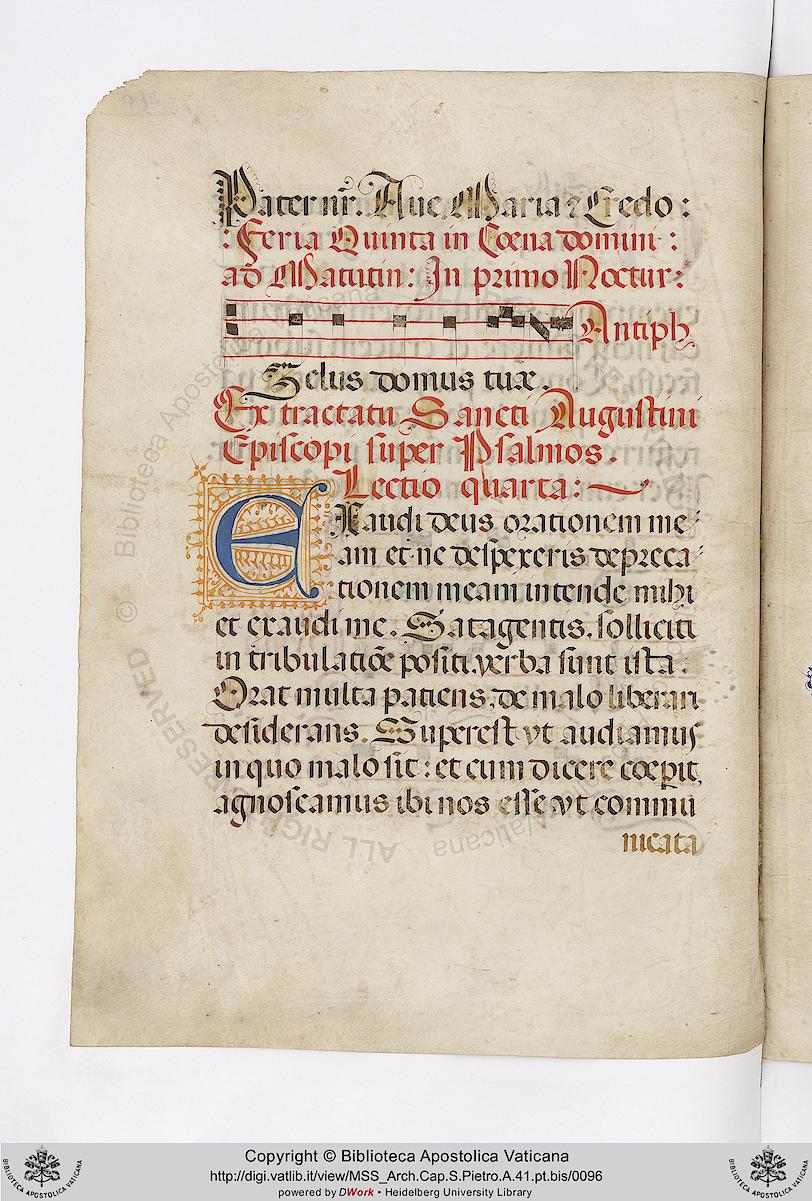 Pater nr̄. Aue Maria ⁊ Credo :
: Feria Quinta in Cœna domini :
ad Matutin : In primo Noctur :
Antiph
Zelus domus tuæ.
Ex tractatu Sancti Augustini
Episcopi super Psalmos.
Lectio quarta :
EXaudi deus orationem me-
am et ne despexeris depreca-
tionem meam intende mihi
et exaudi me. Satagentis, solliciti
in tribulatiōe positi, verba sunt ista.
Orat multa patiens, de malo liberari
desiderans. Superest vt audiamus
in quo malo sit : et cum dicere cœperit,
agnoscamus ibi nos esse vt commu
nicata
© Biblioteca Apostolica Vaticana
ALL RIGHTS RESERVED
Copyright © Biblioteca Apostolica Vaticana
http://digi.vatlib.it/view/MSS_Arch.Cap.S.Pietro.A.41.pt.bis/0096
powered by DWork • Heidelberg University Library
BIBLIOTECA APOSTOLICA VATICANA
BIBLIOTECA APOSTOLICA VATICANA